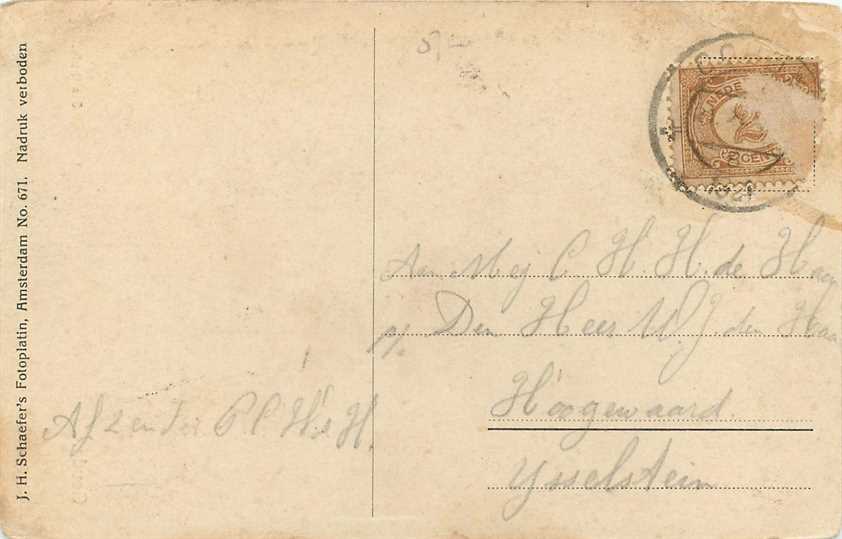 J. H. Schaefer's Fotoplatin, Amsterdam No. 671. Nadruk verboden
5/-
NEDE
CENT
Aan Mej C H. H. de Haan
p/a Den Heer W. J. den Haan
Hoogewaard
Ysselstein
Afzender P C H d H.